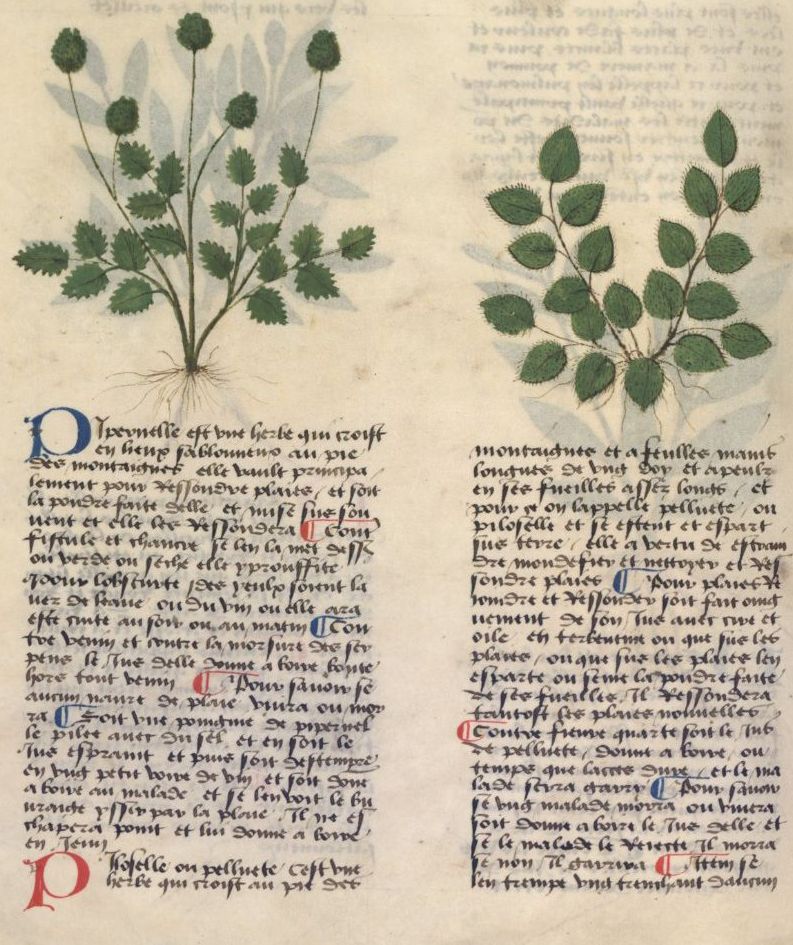 Pipernelle est vne herbe qui croist
en lieux sablonneux au pie
des montaignes elle vault principa
lement pour ressondre plaies et soit
la poudre faite delle et mise sus sou
uent et elle les ressondera Cont
fistule et chancre se len la met dess9
ou verde ou seche elle y prouffite
Pour lobscurte des yeulx soient la
uez de leaue ou du vin ou elle ara
este cuite au soir ou au matin Con
tre venin et contre la morsure des ser
pens le Jus delle donne a boire boute
hors tout venin Pour sauoir se
aucun naure de plaie viura ou mor
ra Soit vne poingnie de pipernel
le pilee auec du sel et en soit le
Jus espraint et puis soit destempre
en vng petit voire de vin et soit done
a boire au malade et se len voit le bu
uraige yssir par la plaie Il ne es
chapera point et lui donne a boire
en Jeun
Piloselle ou pelluete Cest vne
herbe qui croist au pie des
montaignes et a feulles mains
longues de vng doy et a peulz
en ses fueilles assez longs et
pour ce on lappelle pelluete ou
piloselle et se estent et espart
sus terre elle a vertu de estrain
dre mondefier et nettoyer et res
sondre plaies Pour plaies re
iomdre et ressonder soit fait oing
nement de son Jus auec cire et
oile et terbentine ou que sus les
plaies ou que sus les plaies len
esparte ou seme la poudre faite
de ses fueilles Il ressondera
tantost les plaies nouuelles
Contre fieure quarte soit le Jus
de pelluete donne a boire ou
temps que lacces dure et le ma
lade sera gary Pour sauoir
se vng malade morra ou viuera
soit donne a boire le Jus delle et
se le malade le reiecte Il morra
se non Il garira Item se
len trempe vng trenchant daucun